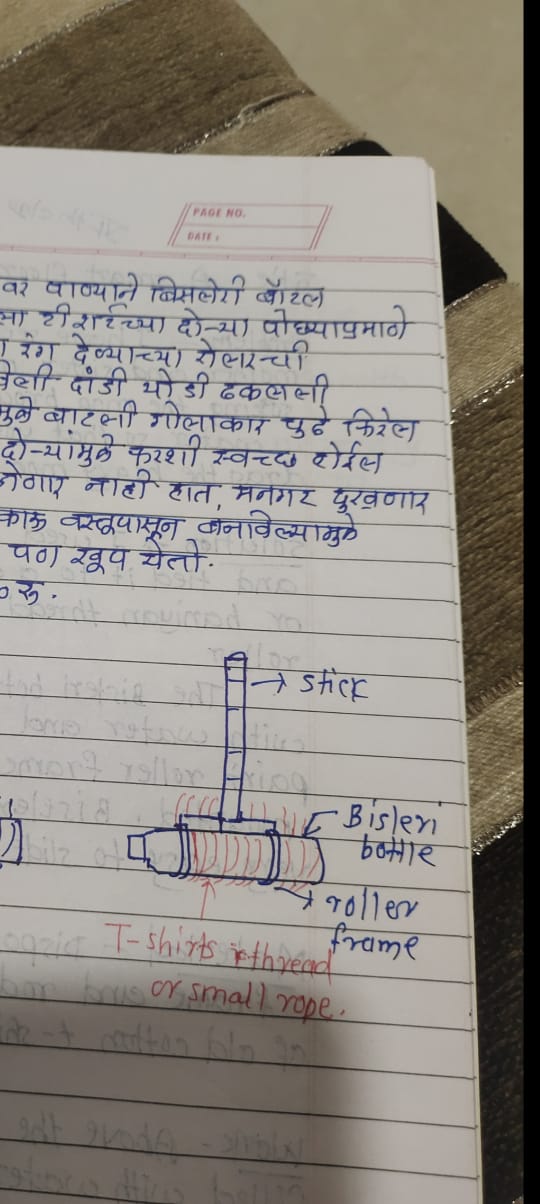 PAGE NO.
DATE :
वर पाण्याने बिसलेरी बॉटल
ला टी शर्टच्या दोऱ्या पोछ्याप्रमाणे
रंग देण्याच्या रोलरची
दांडी थोडी ढकलली
मुळे बाटली गोलाकार पुढे फिरेल
दोऱ्यांमुळे फरशी स्वच्छ होईल
नाही हात, मनगट दुखणार
वस्तूपासून बनविल्यामुळे
पण खूप येतो.
रु.
→ stick
Bisleri
bottle
→ roller
frame
T-shirts thread
or small rope.